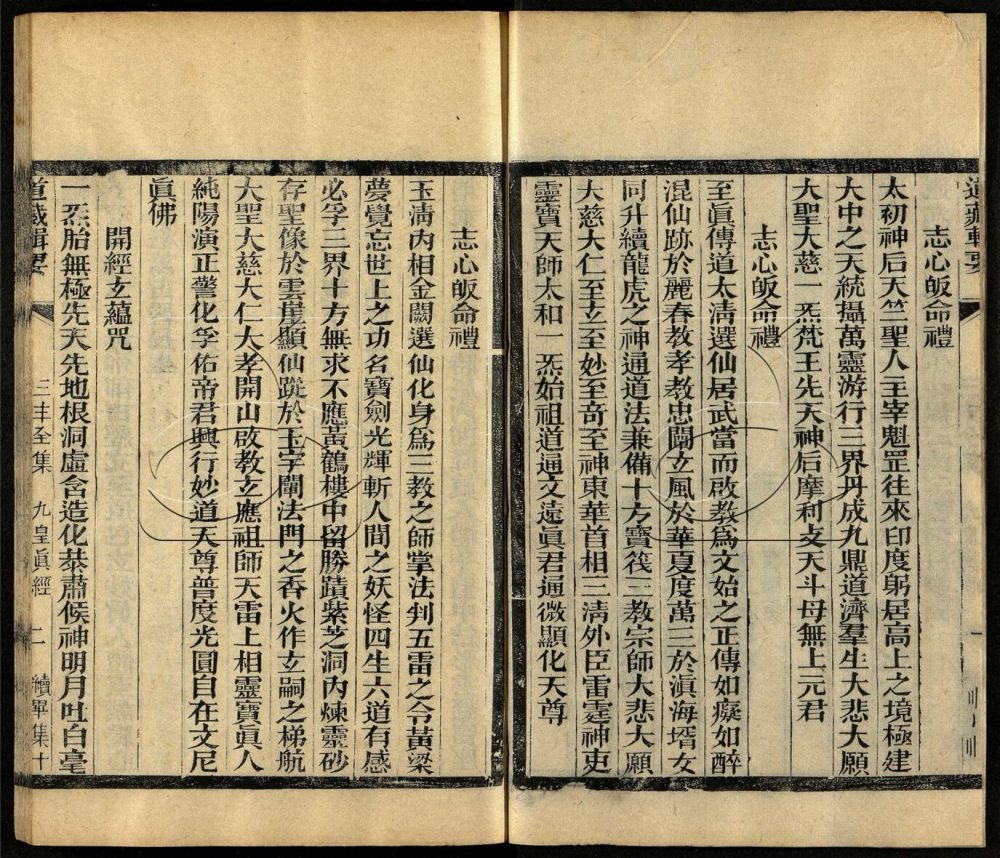 道藏輯要
志心皈命禮
太初神后天竺聖人主宰魁罡往來印度躬居高上之境極建
大中之天統攝萬靈游行三界丹成九鼎道濟羣生大悲大願
大聖大慈一炁梵王先天神后摩利支天斗母無上元君
志心皈命禮
至眞傳道太淸選仙居武當而啟教爲文始之正傳如癡如醉
混仙跡於麗春教孝教忠闡立風於華夏度萬三於滇海壻女
同升續龍虎之神通道法兼備十方寶筏三教宗師大悲大願
大慈大仁至玄至妙至奇至神東華首相三淸外臣雷霆神吏
靈寶天師太和一炁始祖道通文遠眞君通微顯化天尊
志心皈命禮
玉淸內相金闕選仙化身爲三教之師掌法判五雷之令黃梁
夢覺忘世上之功名寶劍光輝斬人間之妖怪四生六道有感
必孚三界十方無求不應黃鶴樓中留勝蹟紫芝洞內煉靈砂
存聖像於雲崖顯仙蹤於玉字闡法門之香火作玄嗣之梯航
大聖大慈大仁大孝開山啟教玄應祖師天雷上相靈寶眞人
純陽演正警化孚佑帝君興行妙道天尊普度光圓自在文尼
眞佛
開經玄蘊咒
一炁胎無極先天先地根洞虛含造化恭肅候神明月吐白毫
道藏輯要 三丰全集 九皇眞經 二 續畢集十